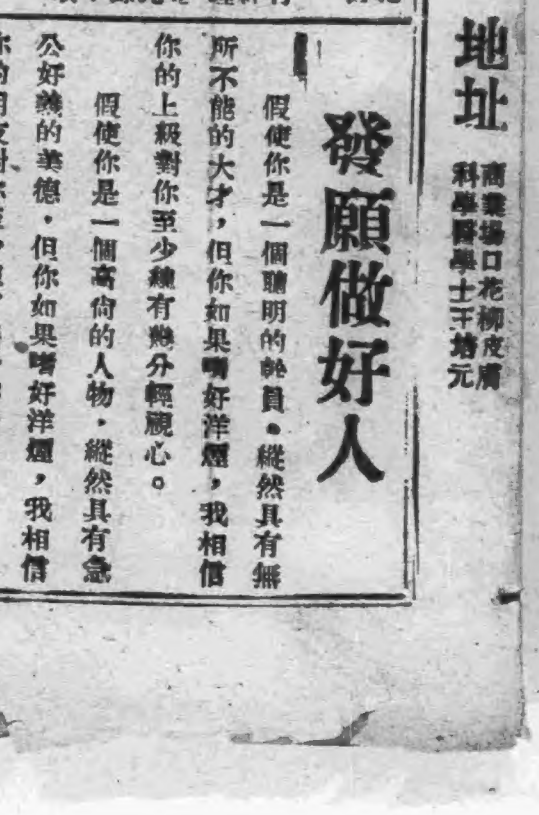 地址
商業場口花柳皮膚
科學醫學士王培元
發願做好人
假使你是一個聰明的幹員。縱然具有無
所不能的大才,但你如果嗜好洋煙,我相信
你的上級對你至少總有幾分輕視心。
假使你是一個高尚的人物,縱然具有急
公好義的美德,但你如果嗜好洋煙,我相信